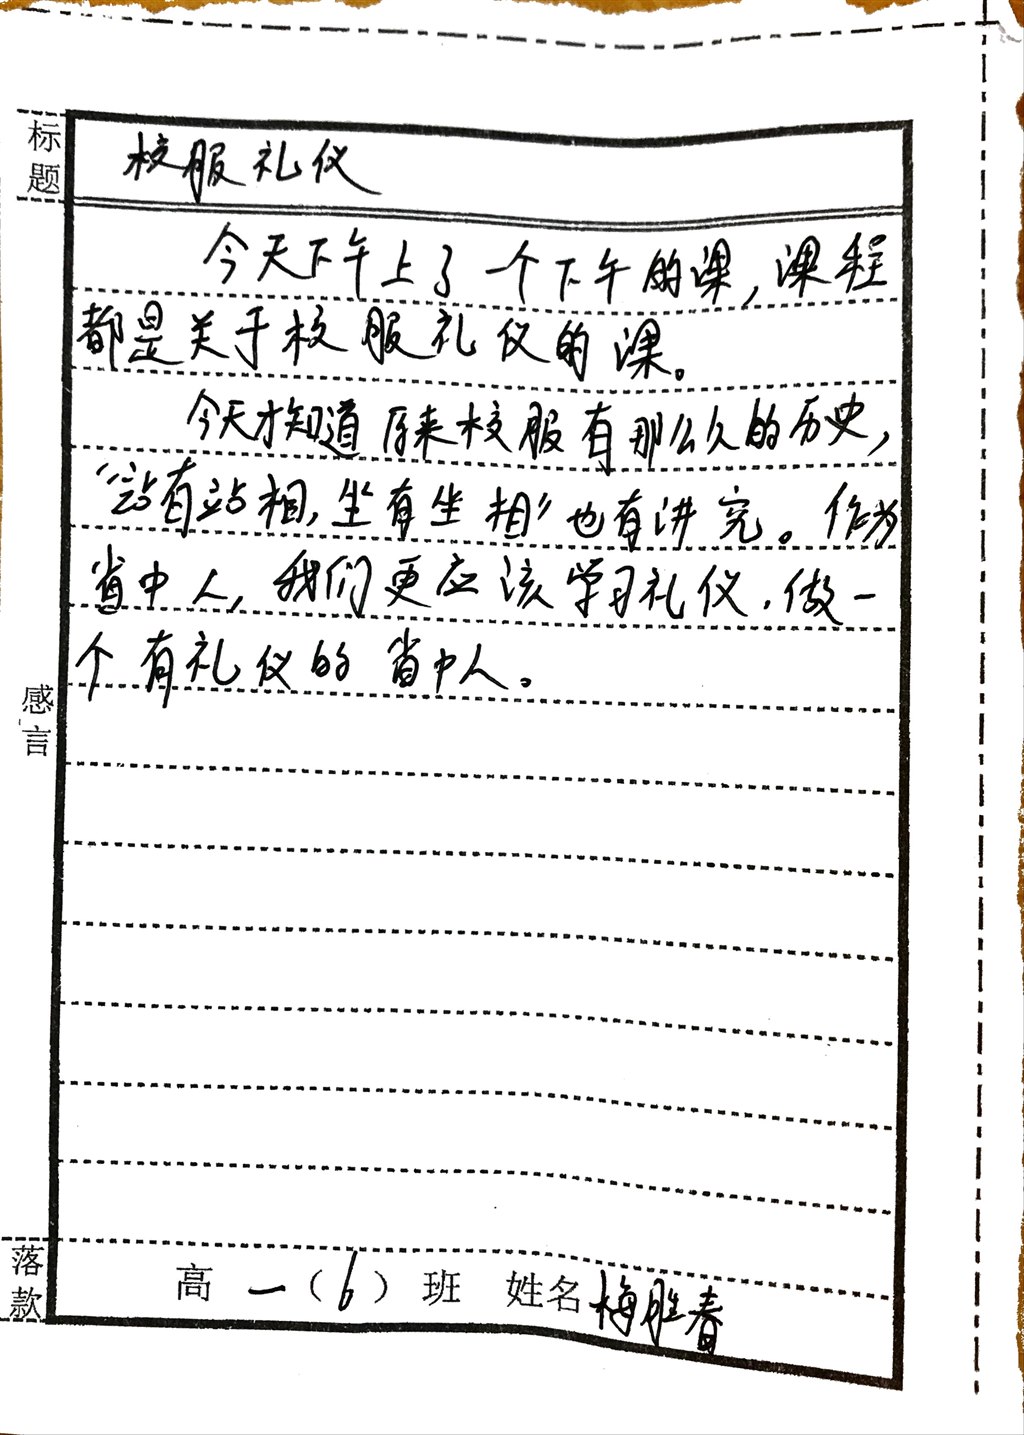 标题
校服礼仪
今天下午上了一个下午的课,课程
都是关于校服礼仪的课。
今天才知道原来校服有那么久的历史,
“站有站相,坐有坐相”也有讲究。作为
省中人,我们更应该学习礼仪.做一
个有礼仪的省中人。
感言
落款
高一(6)班 姓名梅胜春